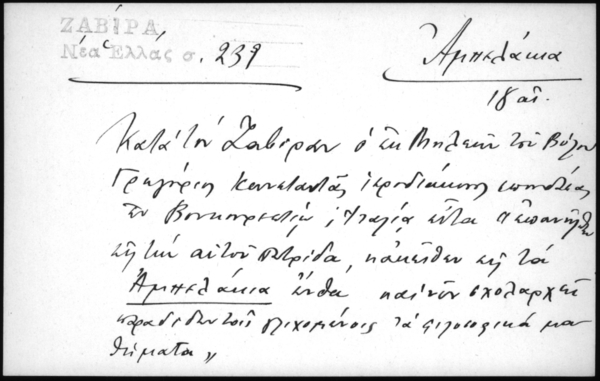 ΖΑΒΙΡΑ
Νέα Ἑλλάς σ. 239
Ἀμπελάκια
18 αἰ.
Κατὰ τὸν Ζαβίραν ὁ ἐκ Μηλεῶν τοῦ Βόλου
Γρηγόριος Κωνσταντᾶς ἱεροδιάκονος σπουδάσας
ἐν Βουκουρεστίῳ, Ἰταλίᾳ εἶτα ἐπανῆλθεν
εἰς τὴν αὐτοῦ πατρίδα, κἀκεῖθεν εἰς τὰ
Ἀμπελάκια ἔνθα καὶ νῦν σχολαρχεῖ
παραδιδοὺς τοῖς γλιχομένοις τὰ φιλοσοφικὰ μα
θήματα»